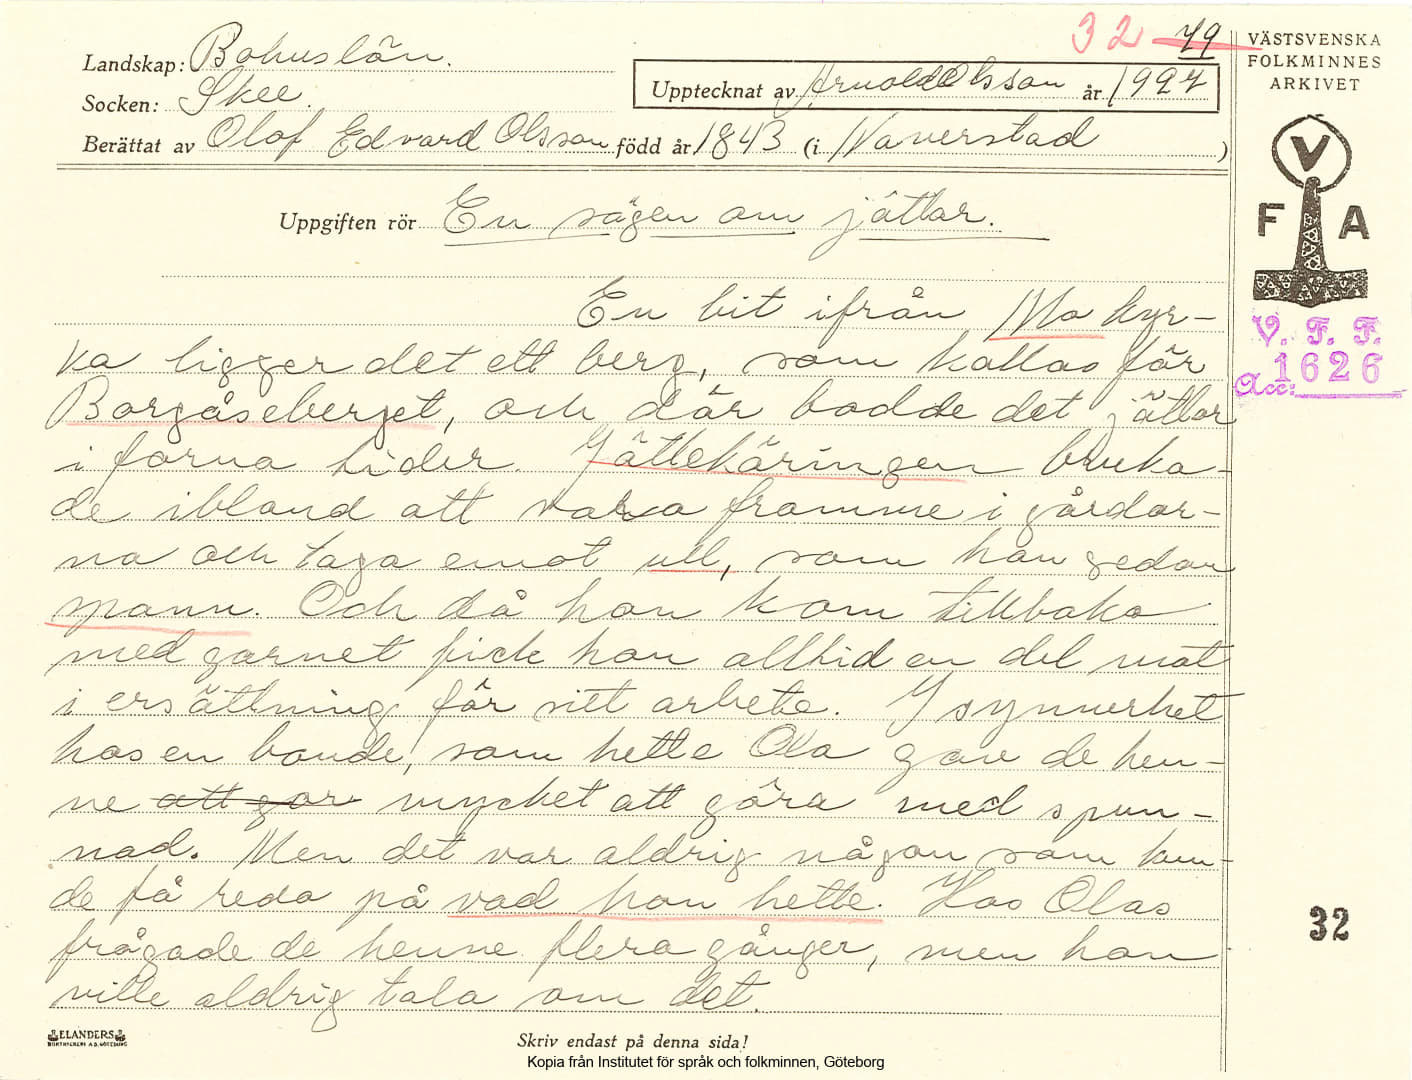 32 79
Landskap: Bohuslän.
Socken: Skee.
Upptecknat av Arnold Olsson år 1927
Berättat av Olof Edvard Olsson född år 1843 (i Naverstad)
Uppgiften rör En sägen om jättar.
En bit ifrån Mo kyr-
ka ligger det ett berg, som kallas för
Borgåseberget, och där bodde det jättar
i forna tider. Jättekäringen bruka-
de ibland att vara framme i gårdar-
na och taga emot ull, som hon sedan
spann. Och då hon kom tillbaka
med garnet fick hon alltid en del mat
i ersättning för sitt arbete. I synnerhet
hos en bonde, som hette Ola gav de hen-
ne att gör mycket att göra med spun-
nad. Men det var aldrig någon som kun-
de få reda på vad hon hette. Hos Olas
frågade de henne flera gånger, men hon
ville aldrig tala om det.
ELANDERS
BOKTRYCKERI A.B. GÖTEBORG
Skriv endast på denna sida!
Kopia från Institutet för språk och folkminnen, Göteborg
VÄSTSVENSKA
FOLKMINNES
ARKIVET
V
F A
V. F. F.
Acc: 1626
32